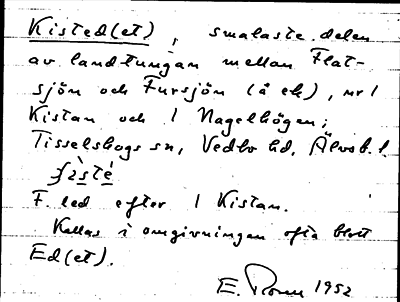 Kisted(et), smalaste delen
av landtungan mellan Flat-
sjön och Fursjön (å ek), nr 1
Kistan och 1 Nagelhögen;
Tisselskogs sn, Vedbo hd, Älvsb. l.
F. led efter 1 Kistan.
Kallas i omgivningen ofta blott
Ed(et).
E. 1952